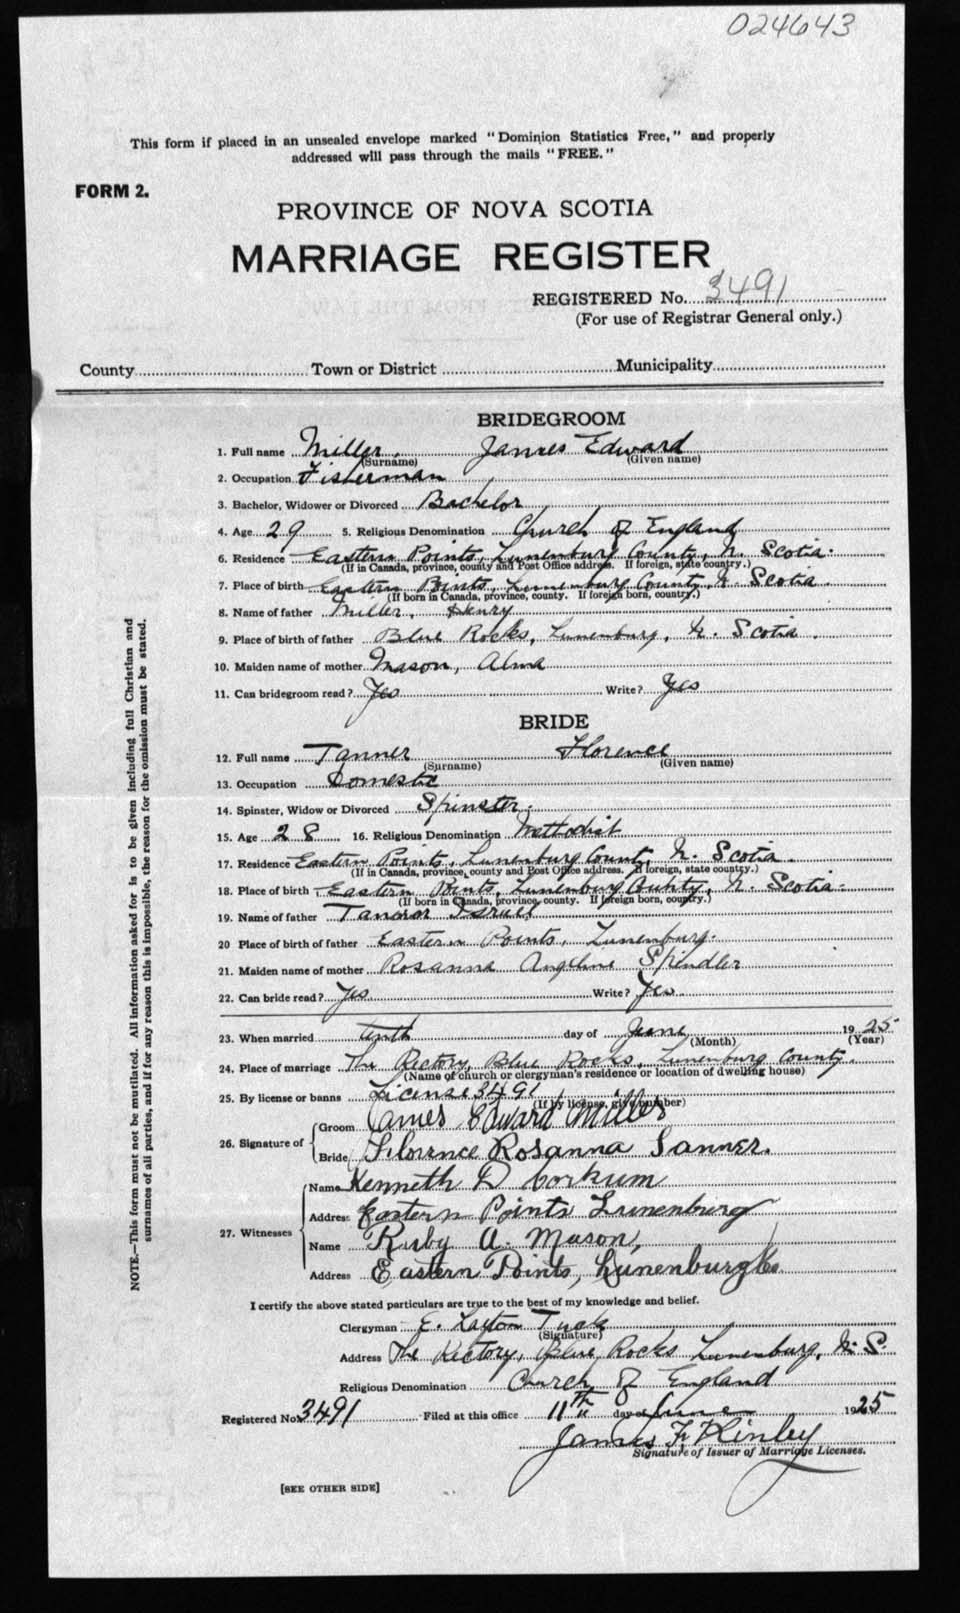 024643
This form if placed in an unsealed envelope marked "Dominion Statistics Free," and properly
addressed will pass through the mails "FREE."
FORM 2.
PROVINCE OF NOVA SCOTIA
MARRIAGE REGISTER
REGISTERED No. 3491
(For use of Registrar General only.)
County Town or District Municipality
BRIDEGROOM
1. Full name Miller, James Edward
(Surname) (Given name)
2. Occupation Fisherman
3. Bachelor, Widower or Divorced Bachelor
4. Age 29 5. Religious Denomination Church of England
6. Residence Eastern Points, Lunenburg County, N. Scotia.
(If in Canada, province, county and Post Office address. If foreign, state country.)
7. Place of birth Eastern Points, Lunenburg County, N. Scotia.
(If born in Canada, province, county. If foreign born, country.)
8. Name of father Miller, Henry
9. Place of birth of father Blue Rocks, Lunenburg, N. Scotia.
10. Maiden name of mother Mason, Alma
11. Can bridegroom read? Yes Write? Yes
BRIDE
12. Full name Tanner Florence
(Surname) (Given name)
13. Occupation Domestic
14. Spinster, Widow or Divorced Spinster.
15. Age 28 16. Religious Denomination Methodist
17. Residence Eastern Points, Lunenburg County, N. Scotia.
(If in Canada, province, county and Post Office address. If foreign, state country.)
18. Place of birth Eastern Points, Lunenburg County, N. Scotia.
(If born in Canada, province, county. If foreign born, country.)
19. Name of father Tanner Israel
20 Place of birth of father Eastern Points, Lunenburg.
21. Maiden name of mother Rosanna Angeline Spindler
22. Can bride read? Yes Write? Yes.
23. When married tenth day of June 1925
(Month) (Year)
24. Place of marriage The Rectory, Blue Rocks, Lunenburg County.
(Name of church or clergyman's residence or location of dwelling house)
25. By license or banns License 3491
(If by license, give number)
26. Signature of Groom James Edward Miller
Bride Florence Rosanna Tanner.
27. Witnesses Name Kenneth D Corkum
Address Eastern Points Lunenburg
Name Ruby A. Mason,
Address Eastern Points, Lunenburg Co.
I certify the above stated particulars are true to the best of my knowledge and belief.
Clergyman E. Layton Tuck
(Signature)
Address The Rectory, Blue Rocks Lunenburg, N. S.
Religious Denomination Church of England
Registered No. 3491 Filed at this office 11th day of June 1925
James F. Kinley
Signature of Issuer of Marriage Licenses.
[SEE OTHER SIDE]
NOTE.—This form must not be mutilated. All information asked for is to be given including full Christian and
surnames of all parties, and if for any reason this is impossible, the reason for the omission must be stated.